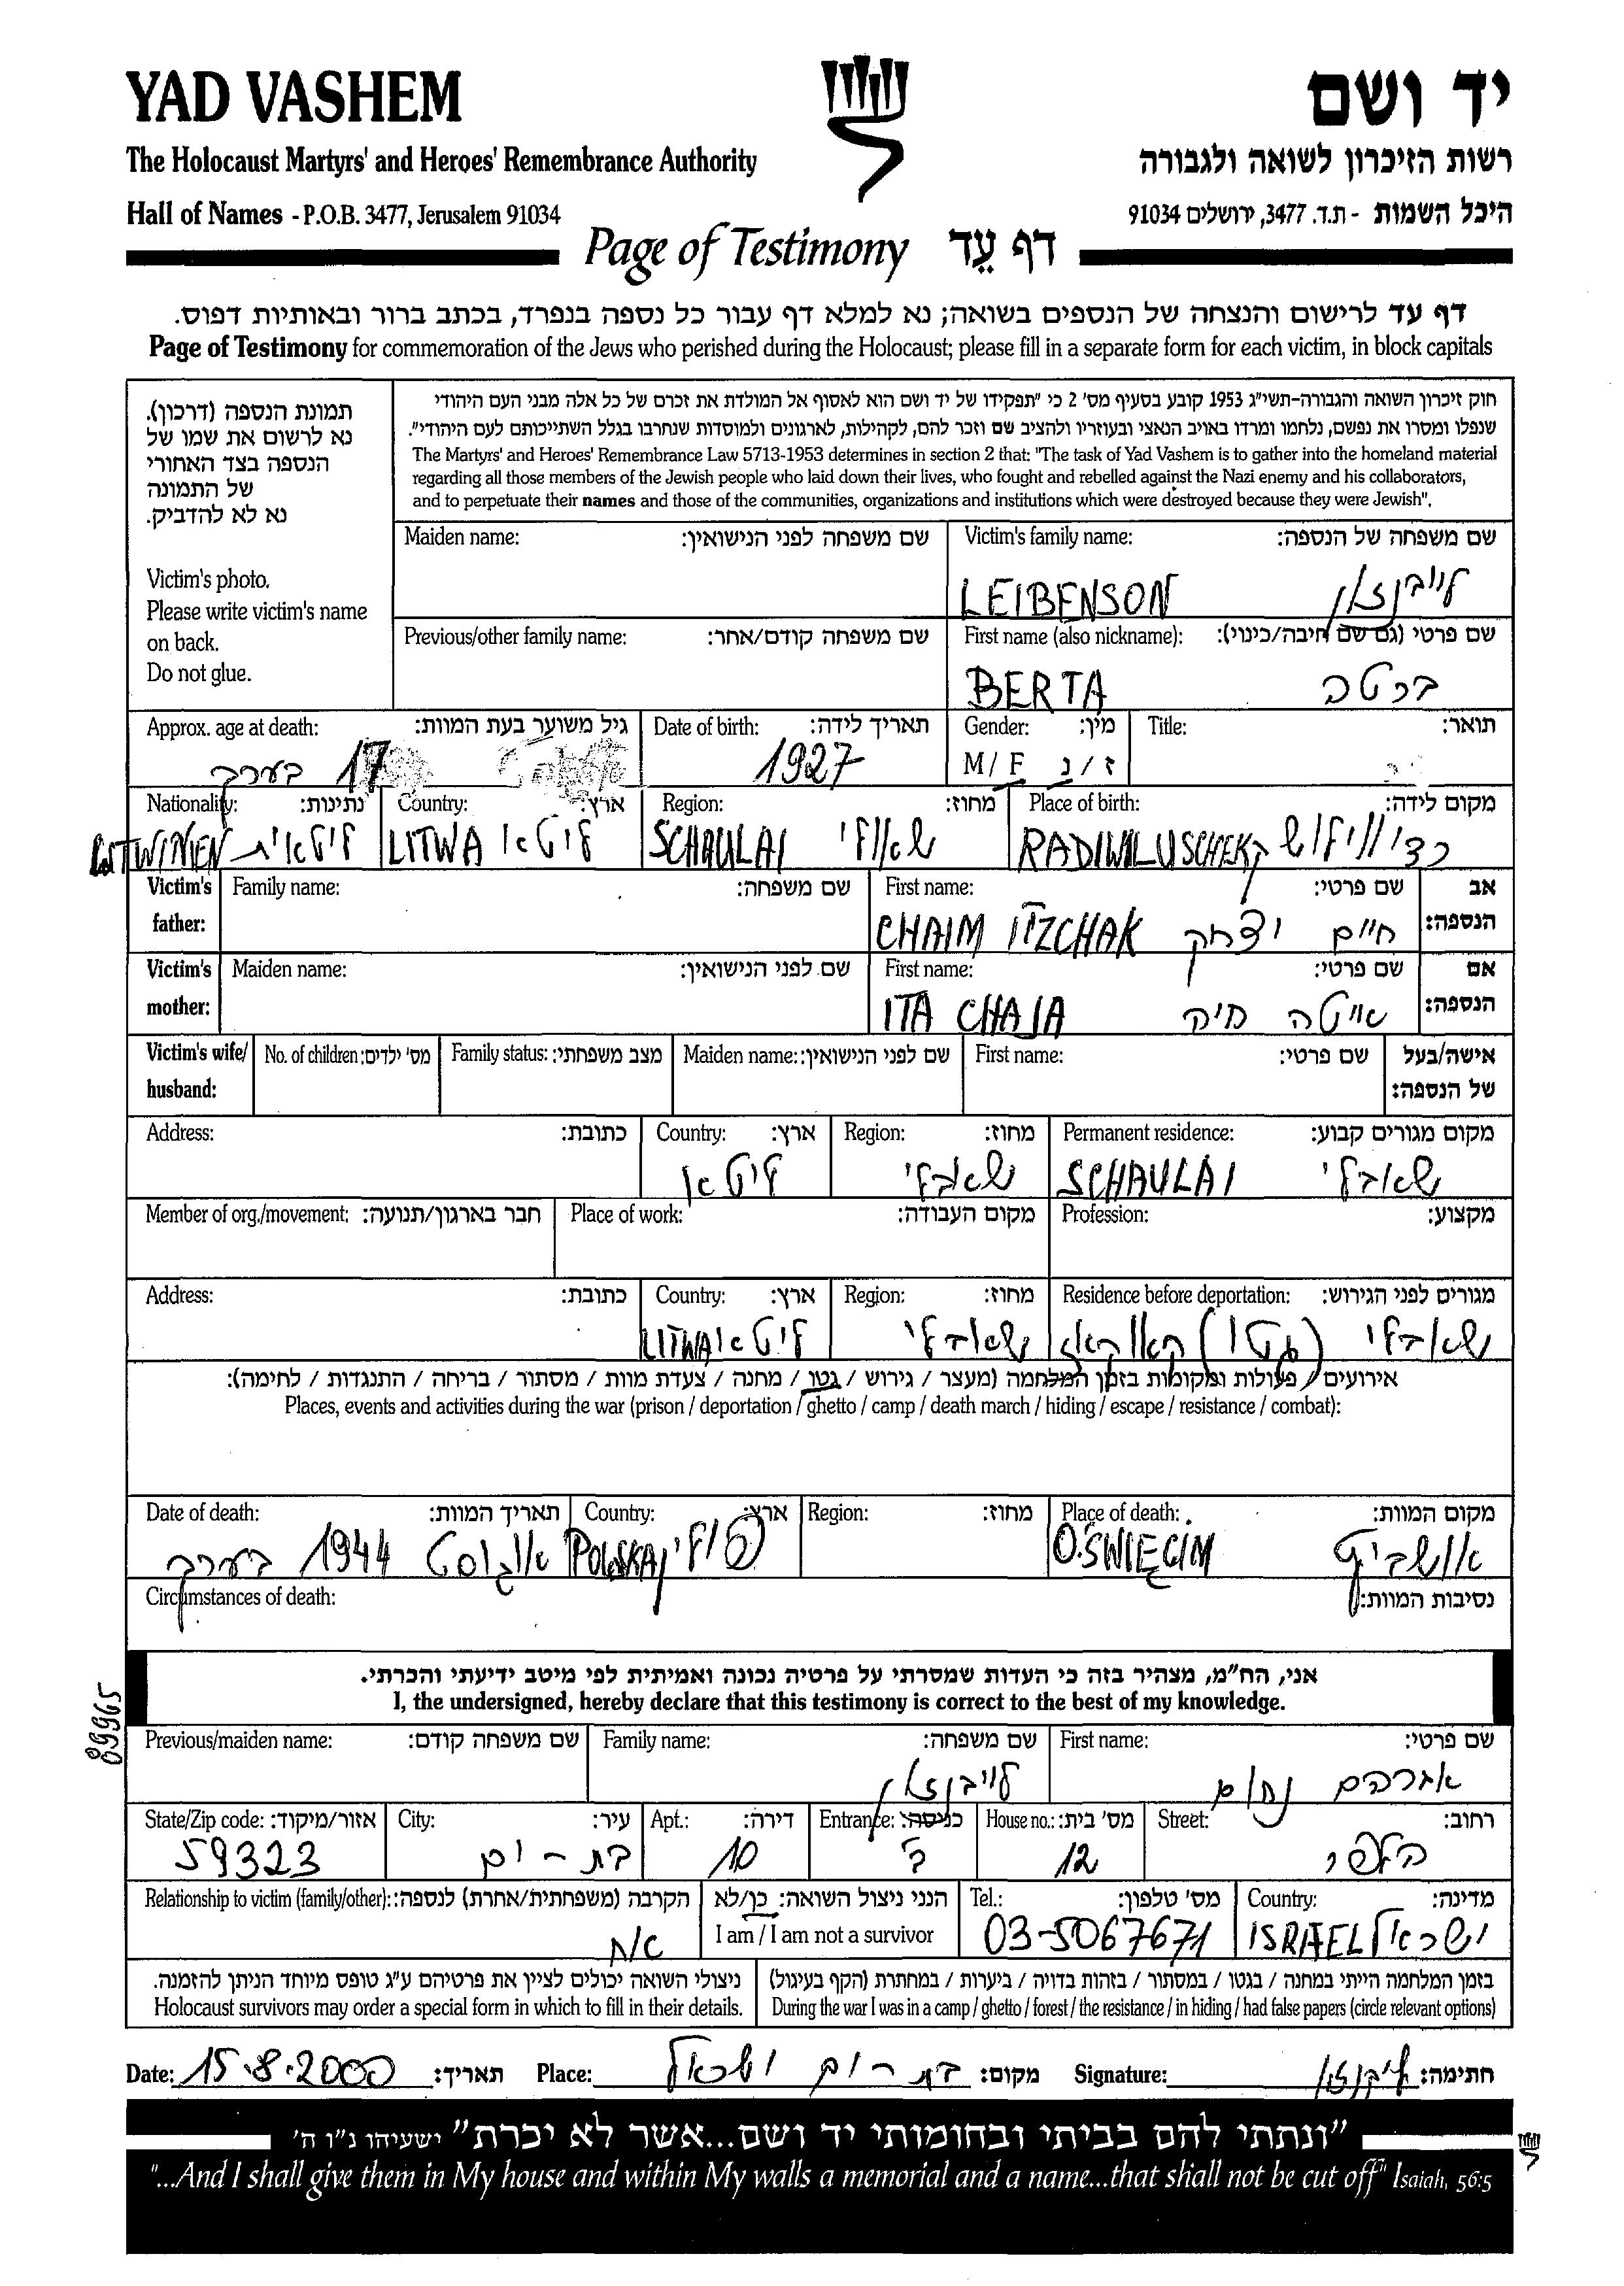 YAD VASHEM
יד ושם
The Holocaust Martyrs' and Heroes' Remembrance Authority
רשות הזיכרון לשואה ולגבורה
Hall of Names - P.O.B. 3477, Jerusalem 91034
היכל השמות - ת.ד. 3477, ירושלים 91034
Page of Testimony דף עֵד
דף עד לרישום והנצחה של הנספים בשואה; נא למלא דף עבור כל נספה בנפרד, בכתב ברור ובאותיות דפוס.
Page of Testimony for commemoration of the Jews who perished during the Holocaust; please fill in a separate form for each victim, in block capitals
תמונת הנספה (דרכון).
נא לרשום את שמו של
הנספה בצד האחורי
של התמונה
נא לא להדביק.
Victim's photo.
Please write victim's name
on back.
Do not glue.
חוק זיכרון השואה והגבורה-תשי"ג 1953 קובע בסעיף מס' 2 כי "תפקידו של יד ושם הוא לאסוף אל המולדת את זכרם של כל אלה מבני העם היהודי
שנפלו ומסרו את נפשם, נלחמו ומרדו באויב הנאצי ובעוזריו ולהציב שם וזכר להם, לקהילות, לארגונים ולמוסדות שנחרבו בגלל השתייכותם לעם היהודי".
The Martyrs' and Heroes' Remembrance Law 5713-1953 determines in section 2 that: "The task of Yad Vashem is to gather into the homeland material
regarding all those members of the Jewish people who laid down their lives, who fought and rebelled against the Nazi enemy and his collaborators,
and to perpetuate their names and those of the communities, organizations and institutions which were destroyed because they were Jewish".
Maiden name: שם משפחה לפני הנישואין:
Victim's family name: שם משפחה של הנספה:
LEIBENSON לייבנזון
Previous/other family name: שם משפחה קודם/אחר:
First name (also nickname): שם פרטי (גם שם חיבה/כינוי):
BERTA ברטה
Approx. age at death: גיל משוער בעת המוות:
17 בערך
Date of birth: תאריך לידה:
1927
Gender: מין:
M / F ז / נ
Title: תואר:
Nationality: נתינות:
ליטאית
Country: ארץ:
LITWA ליטא
Region: מחוז:
SCHAULAI שאולי
Place of birth: מקום לידה:
Victim's father:
Family name: שם משפחה:
First name: שם פרטי:
CHAIM ITZCHAK חיים יצחק
אב הנספה:
Victim's mother:
Maiden name: שם לפני הנישואין:
First name: שם פרטי:
ITA CHAJA איטה חיה
אם הנספה:
Victim's wife/ husband:
No. of children: מס' ילדים:
Family status: מצב משפחתי:
Maiden name: שם לפני הנישואין:
First name: שם פרטי:
אישה/בעל של הנספה:
Address: כתובת:
Country: ארץ:
ליטא
Region: מחוז:
שאבלי
Permanent residence: מקום מגורים קבוע:
SCHAULAI שאבלי
Member of org./movement: חבר בארגון/תנועה:
Place of work: מקום העבודה:
Profession: מקצוע:
Address: כתובת:
Country: ארץ:
LITWA ליטא
Region: מחוז:
שאבלי
Residence before deportation: מגורים לפני הגירוש:
שאבלי (גטו)
אירועים / פעולות ומקומות בזמן המלחמה (מעצר / גירוש / גטו / מחנה / צעדת מוות / מסתור / בריחה / התנגדות / לחימה):
Places, events and activities during the war (prison / deportation / ghetto / camp / death march / hiding / escape / resistance / combat):
Date of death: תאריך המוות:
אוגוסט 1944 בערך
Country: ארץ:
POLSKA פולין
Region: מחוז:
Place of death: מקום המוות:
OŚWIĘCIM אושביץ
Circumstances of death: נסיבות המוות:
אני, הח"מ, מצהיר בזה כי העדות שמסרתי על פרטיה נכונה ואמיתית לפי מיטב ידיעתי והכרתי.
I, the undersigned, hereby declare that this testimony is correct to the best of my knowledge.
89965
Previous/maiden name: שם משפחה קודם:
Family name: שם משפחה:
לייבנזון
First name: שם פרטי:
אברהם נחום
State/Zip code: אזור/מיקוד:
59323
City: עיר:
בת-ים
Apt.: דירה:
10
Entrance: כניסה:
ב
House no.: מס' בית:
12
Street: רחוב:
Relationship to victim (family/other): הקרבה (משפחתית/אחרת) לנספה:
אח
הנני ניצול השואה: כן/לא
I am / I am not a survivor
Tel.: מס' טלפון:
03-5067671
Country: מדינה:
ISRAEL ישראל
ניצולי השואה יכולים לציין את פרטיהם ע"ג טופס מיוחד הניתן להזמנה.
Holocaust survivors may order a special form in which to fill in their details.
בזמן המלחמה הייתי במחנה / בגטו / במסתור / בזהות בדויה / ביערות / במחתרת (הקף בעיגול)
During the war I was in a camp / ghetto / forest / the resistance / in hiding / had false papers (circle relevant options)
Date: 15.8.2000 תאריך: Place: בת-ים ישראל מקום: Signature: לייבנזון חתימה:
"ונתתי להם בביתי ובחומותי יד ושם...אשר לא יכרת" ישעיהו נ"ו ה'
"...And I shall give them in My house and within My walls a memorial and a name...that shall not be cut off" Isaiah, 56:5